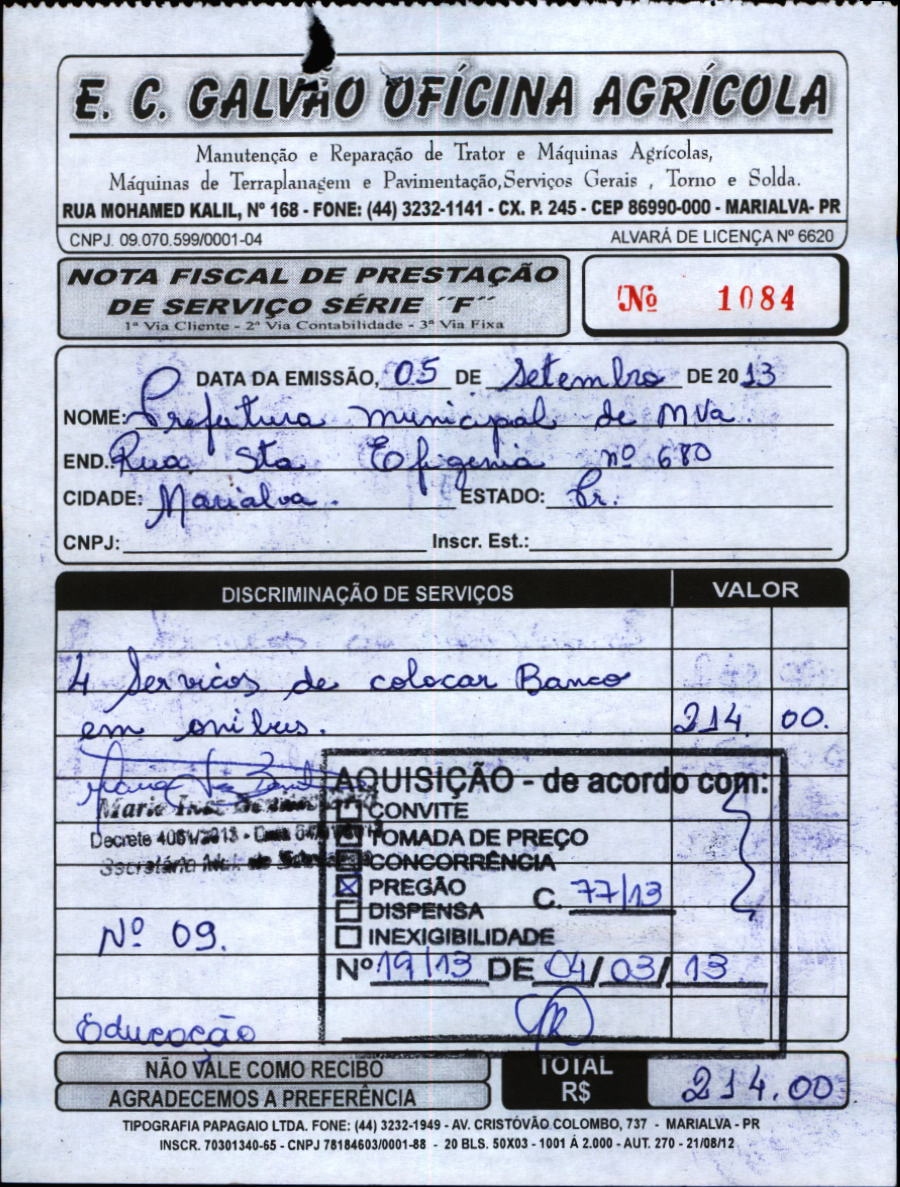 E. C. GALVÃO OFÍCINA AGRÍCOLA
Manutenção e Reparação de Trator e Máquinas Agrícolas,
Máquinas de Terraplanagem e Pavimentação,Serviços Gerais , Torno e Solda.
RUA MOHAMED KALIL, Nº 168 - FONE: (44) 3232-1141 - CX. P. 245 - CEP 86990-000 - MARIALVA- PR
CNPJ. 09.070.599/0001-04 ALVARÁ DE LICENÇA Nº 6620
NOTA FISCAL DE PRESTAÇÃO
DE SERVIÇO SÉRIE ˝F˝
1ª Via Cliente - 2ª Via Contabilidade - 3ª Via Fixa
Nº 1084
DATA DA EMISSÃO, 05 DE Setembro DE 2013
NOME: Prefeitura municipal de MVa.
END.: Rua Sta Efigenia nº 680
CIDADE: Marialva. ESTADO: Pr.
CNPJ: Inscr. Est.:
DISCRIMINAÇÃO DE SERVIÇOS VALOR
4 Servicos de colocar Banco
em onibus. 214 00.
AQUISIÇÃO - de acordo com:
CONVITE
Decreto
TOMADA DE PREÇO
CONCORRÊNCIA
PREGÃO C. 77/13
DISPENSA
Nº 09.
INEXIGIBILIDADE
Nº 19/13 DE 04/03/13
Educação
NÃO VALE COMO RECIBO
AGRADECEMOS A PREFERÊNCIA
TOTAL
R$ 214.00
TIPOGRAFIA PAPAGAIO LTDA. FONE: (44) 3232-1949 - AV. CRISTÓVÃO COLOMBO, 737 - MARIALVA - PR
INSCR. 70301340-65 - CNPJ 78184603/0001-88 - 20 BLS. 50X03 - 1001 Á 2.000 - AUT. 270 - 21/08/12